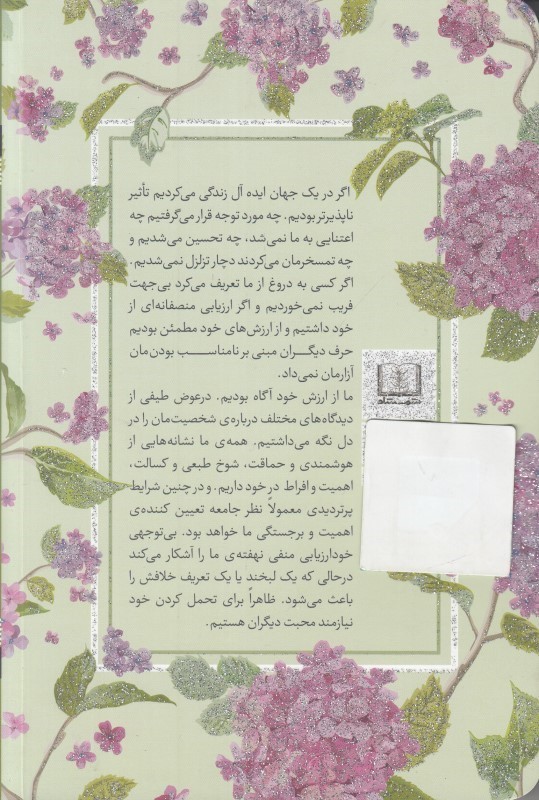 اگر در یک جهان ایده آل زندگی می‌کردیم تأثیر
ناپذیرتر بودیم. چه مورد توجه قرار می‌گرفتیم چه
اعتنایی به ما نمی‌شد، چه تحسین می‌شدیم و
چه تمسخرمان می‌کردند دچار تزلزل نمی‌شدیم.
اگر کسی به دروغ از ما تعریف می‌کرد بی‌جهت
فریب نمی‌خوردیم و اگر ارزیابی منصفانه‌ای از
خود داشتیم و از ارزش‌های خود مطمئن بودیم
حرف دیگران مبنی بر نامناسب بودن‌مان
آزارمان نمی‌داد.
ما از ارزش خود آگاه بودیم. درعوض طیفی از
دیدگاه‌های مختلف درباره‌ی شخصیت‌مان را در
دل نگه می‌داشتیم. همه‌ی ما نشانه‌هایی از
هوشمندی و حماقت، شوخ طبعی و کسالت،
اهمیت و افراط در خود داریم. و در چنین شرایط
پرتردیدی معمولاً نظر جامعه تعیین کننده‌ی
اهمیت و برجستگی ما خواهد بود. بی‌توجهی
خودارزیابی منفی نهفته‌ی ما را آشکار می‌کند
درحالی که یک لبخند یا یک تعریف خلافش را
باعث می‌شود. ظاهراً برای تحمل کردن خود
نیازمند محبت دیگران هستیم.